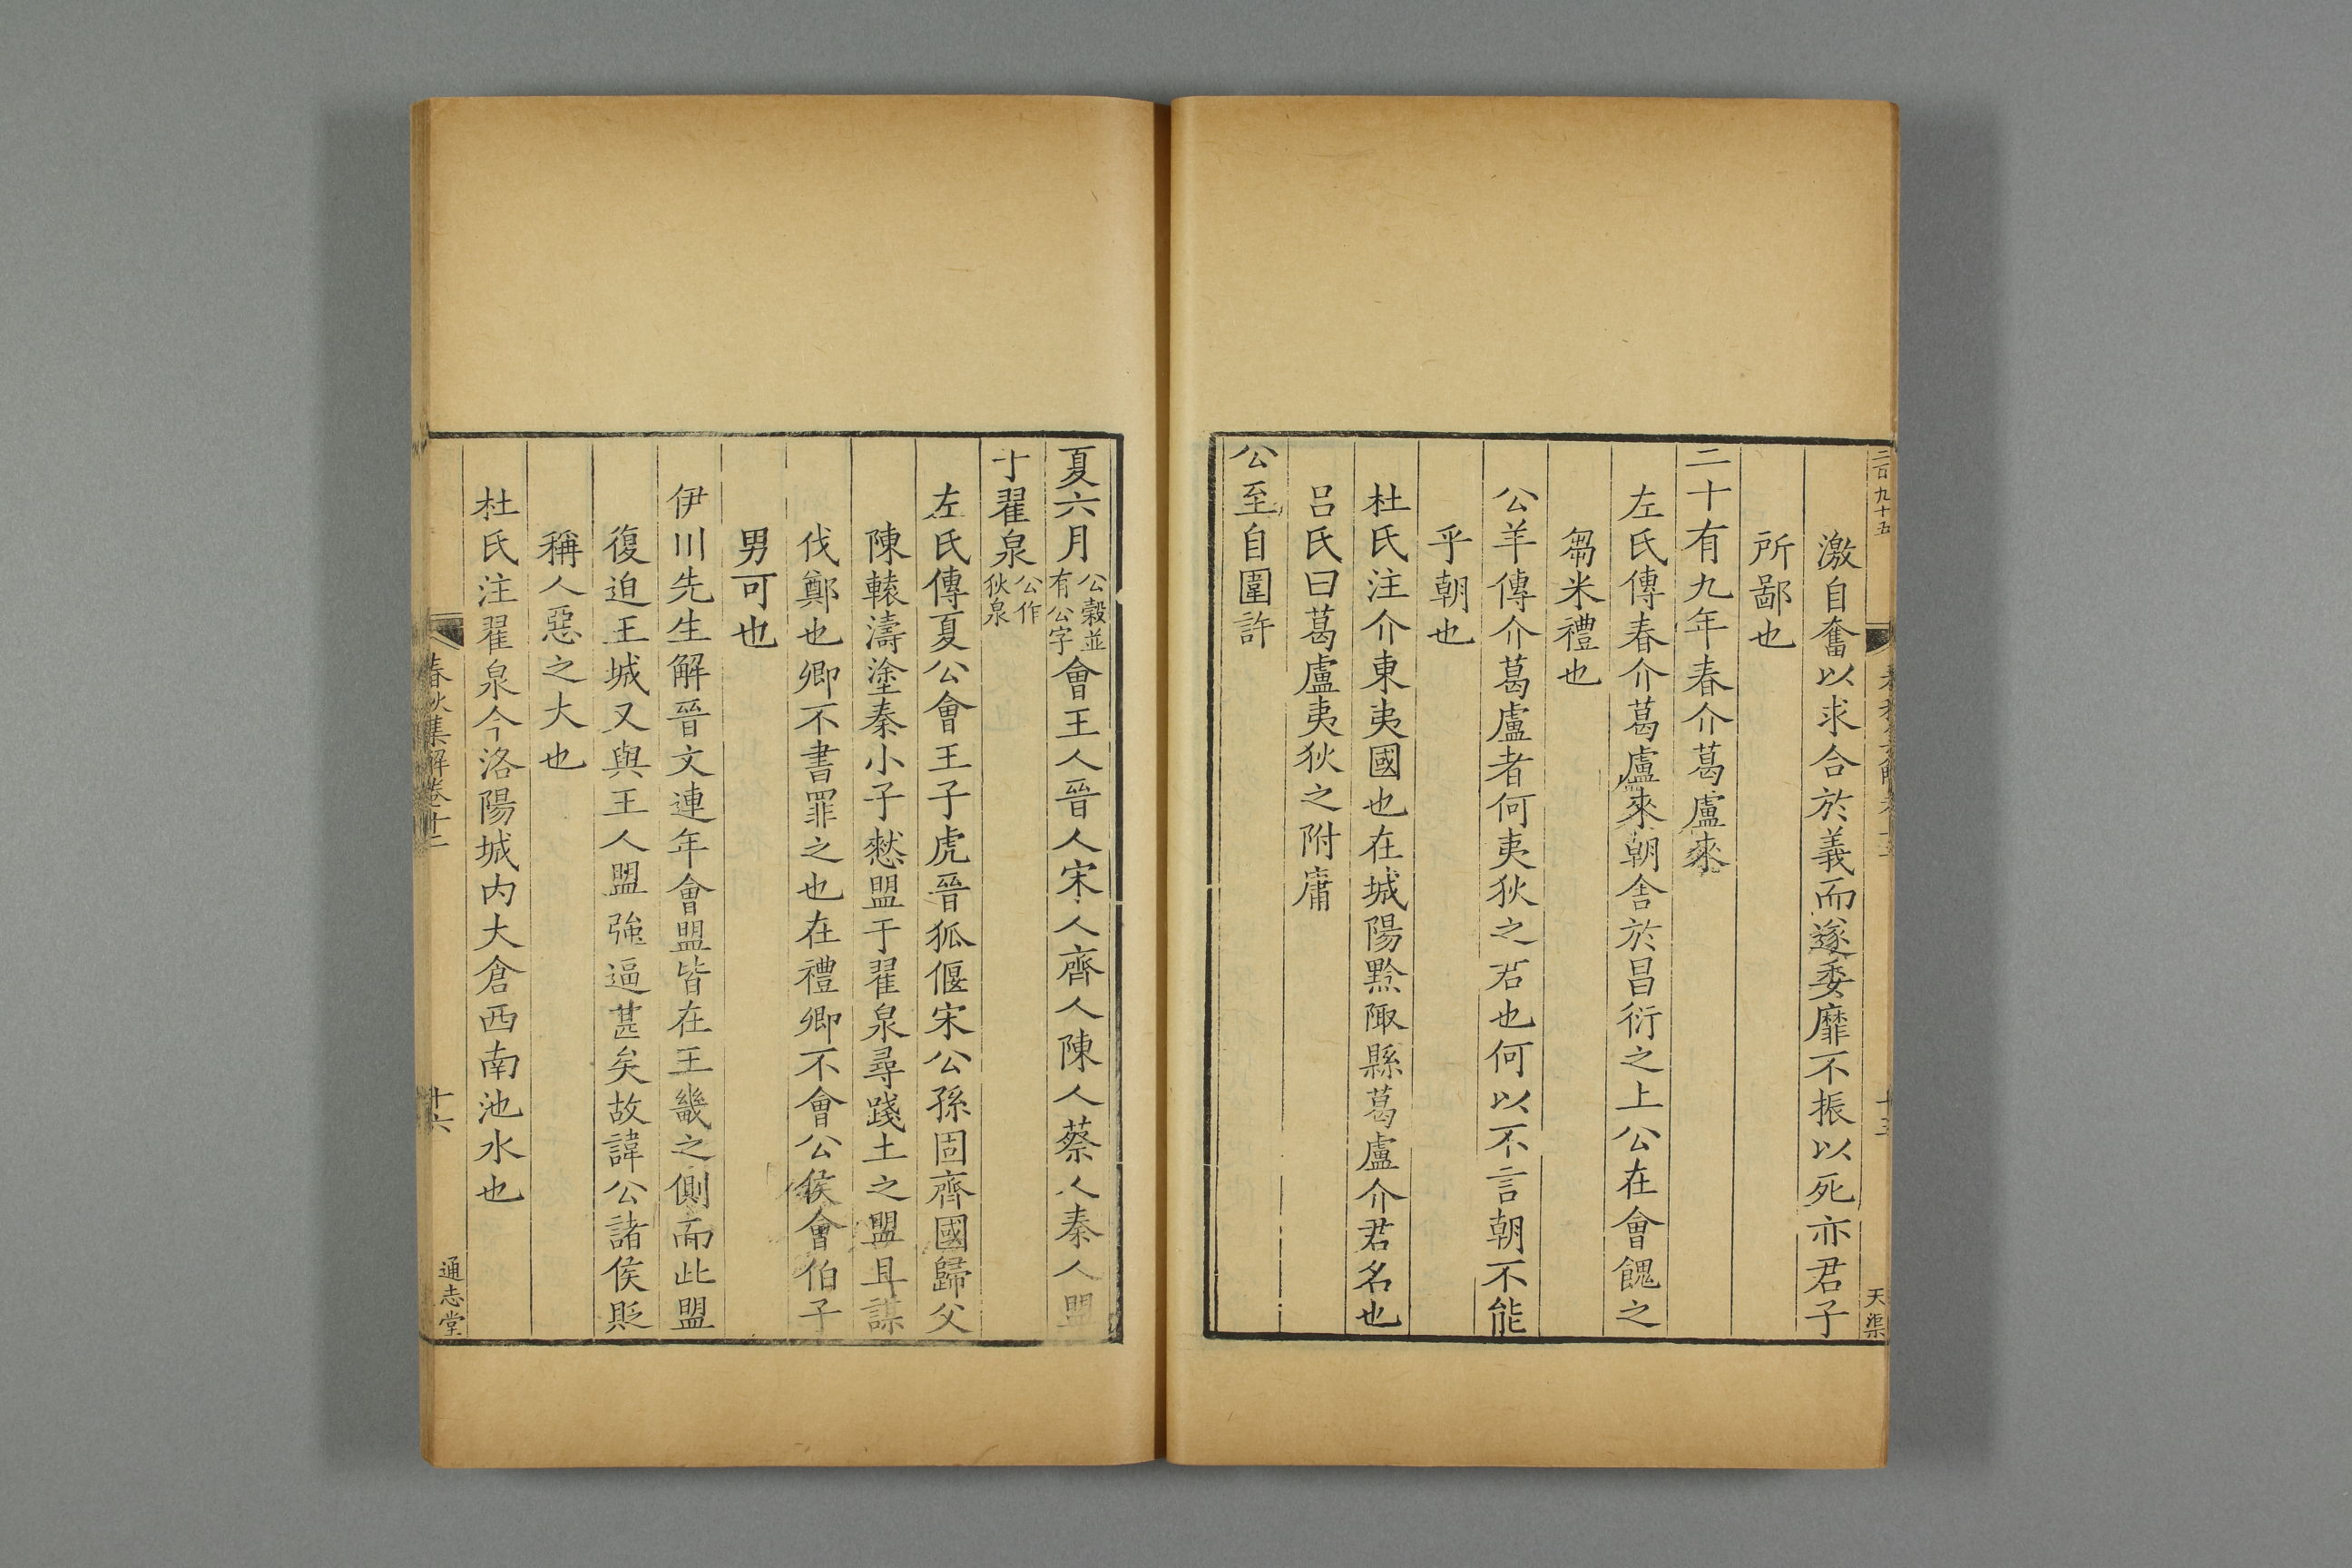 二百九十五
天渠
激自奮以求合於義而遂委靡不振以死亦君子
所鄙也
二十有九年春介葛盧來
左氏傳春介葛盧來朝舍於昌衍之上公在會餽之
芻米禮也
公羊傳介葛盧者何夷狄之君也何以不言朝不能
乎朝也
杜氏注介東夷國也在城陽黔陬縣葛盧介君名也
呂氏曰葛盧夷狄之附庸
公至自圍許
夏六月公穀並有公字會王人晉人宋人齊人陳人蔡人秦人盟
于翟泉公作狄泉
左氏傳夏公會王子虎晉狐偃宋公孫固齊國歸父
陳轅濤塗秦小子憖盟于翟泉尋踐土之盟且謀
伐鄭也卿不書罪之也在禮卿不會公侯會伯子
男可也
伊川先生解晉文連年會盟皆在王畿之側而此盟
復迫王城又與王人盟強逼甚矣故諱公諸侯貶
稱人惡之大也
杜氏注翟泉今洛陽城內大倉西南池水也
春秋集解卷十二
十六
通志堂